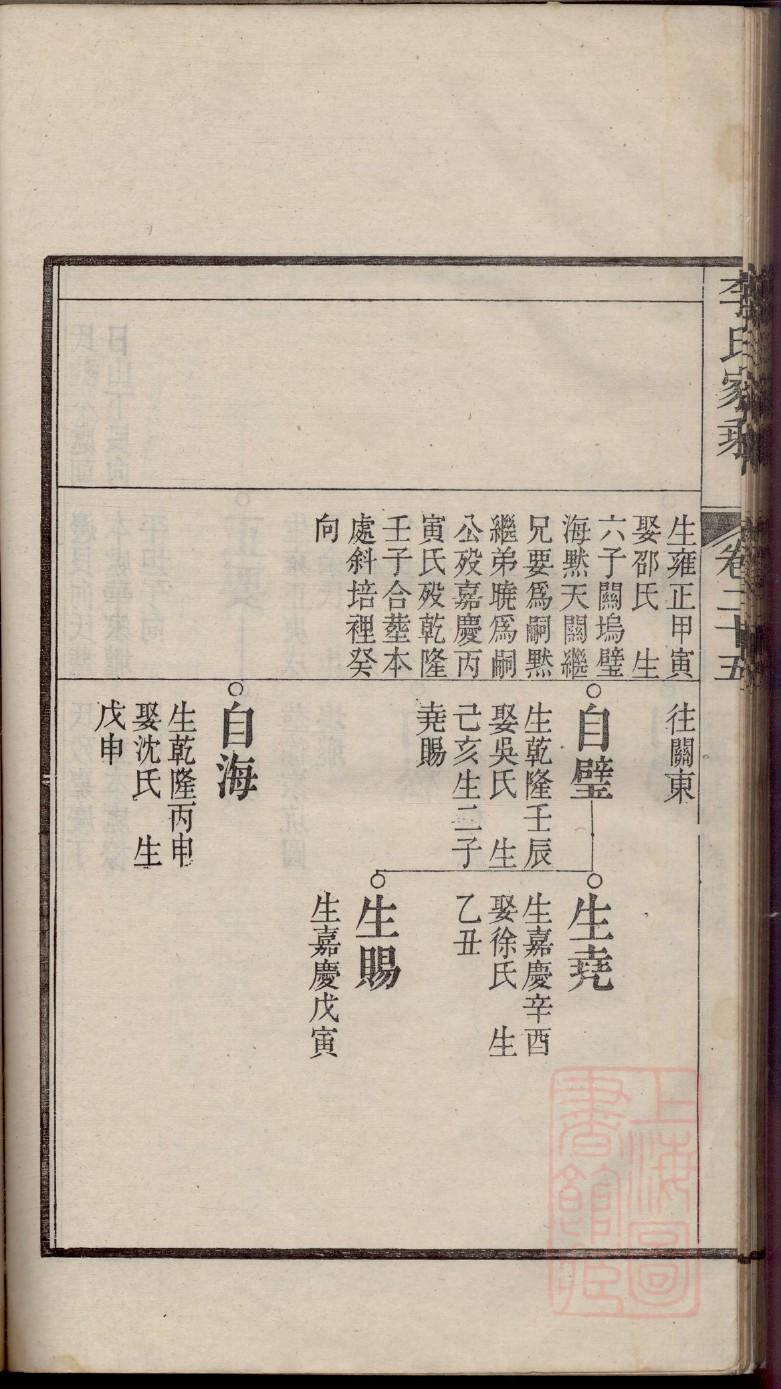 李氏家乘
卷二十五
生雍正甲寅
娶邵氏 生
六子關塢璧
海默天關繼
兄要為嗣默
繼弟曉為嗣
公歿嘉慶丙
寅氏歿乾隆
壬子合塟本
處斜培裡癸
向
往關東
自璧
生乾隆壬辰
娶吳氏 生
己亥生二子
堯賜
自海
生乾隆丙申
娶沈氏 生
戊申
生堯
生嘉慶辛酉
娶徐氏 生
乙丑
生賜
生嘉慶戊寅
上海圖
書館藏